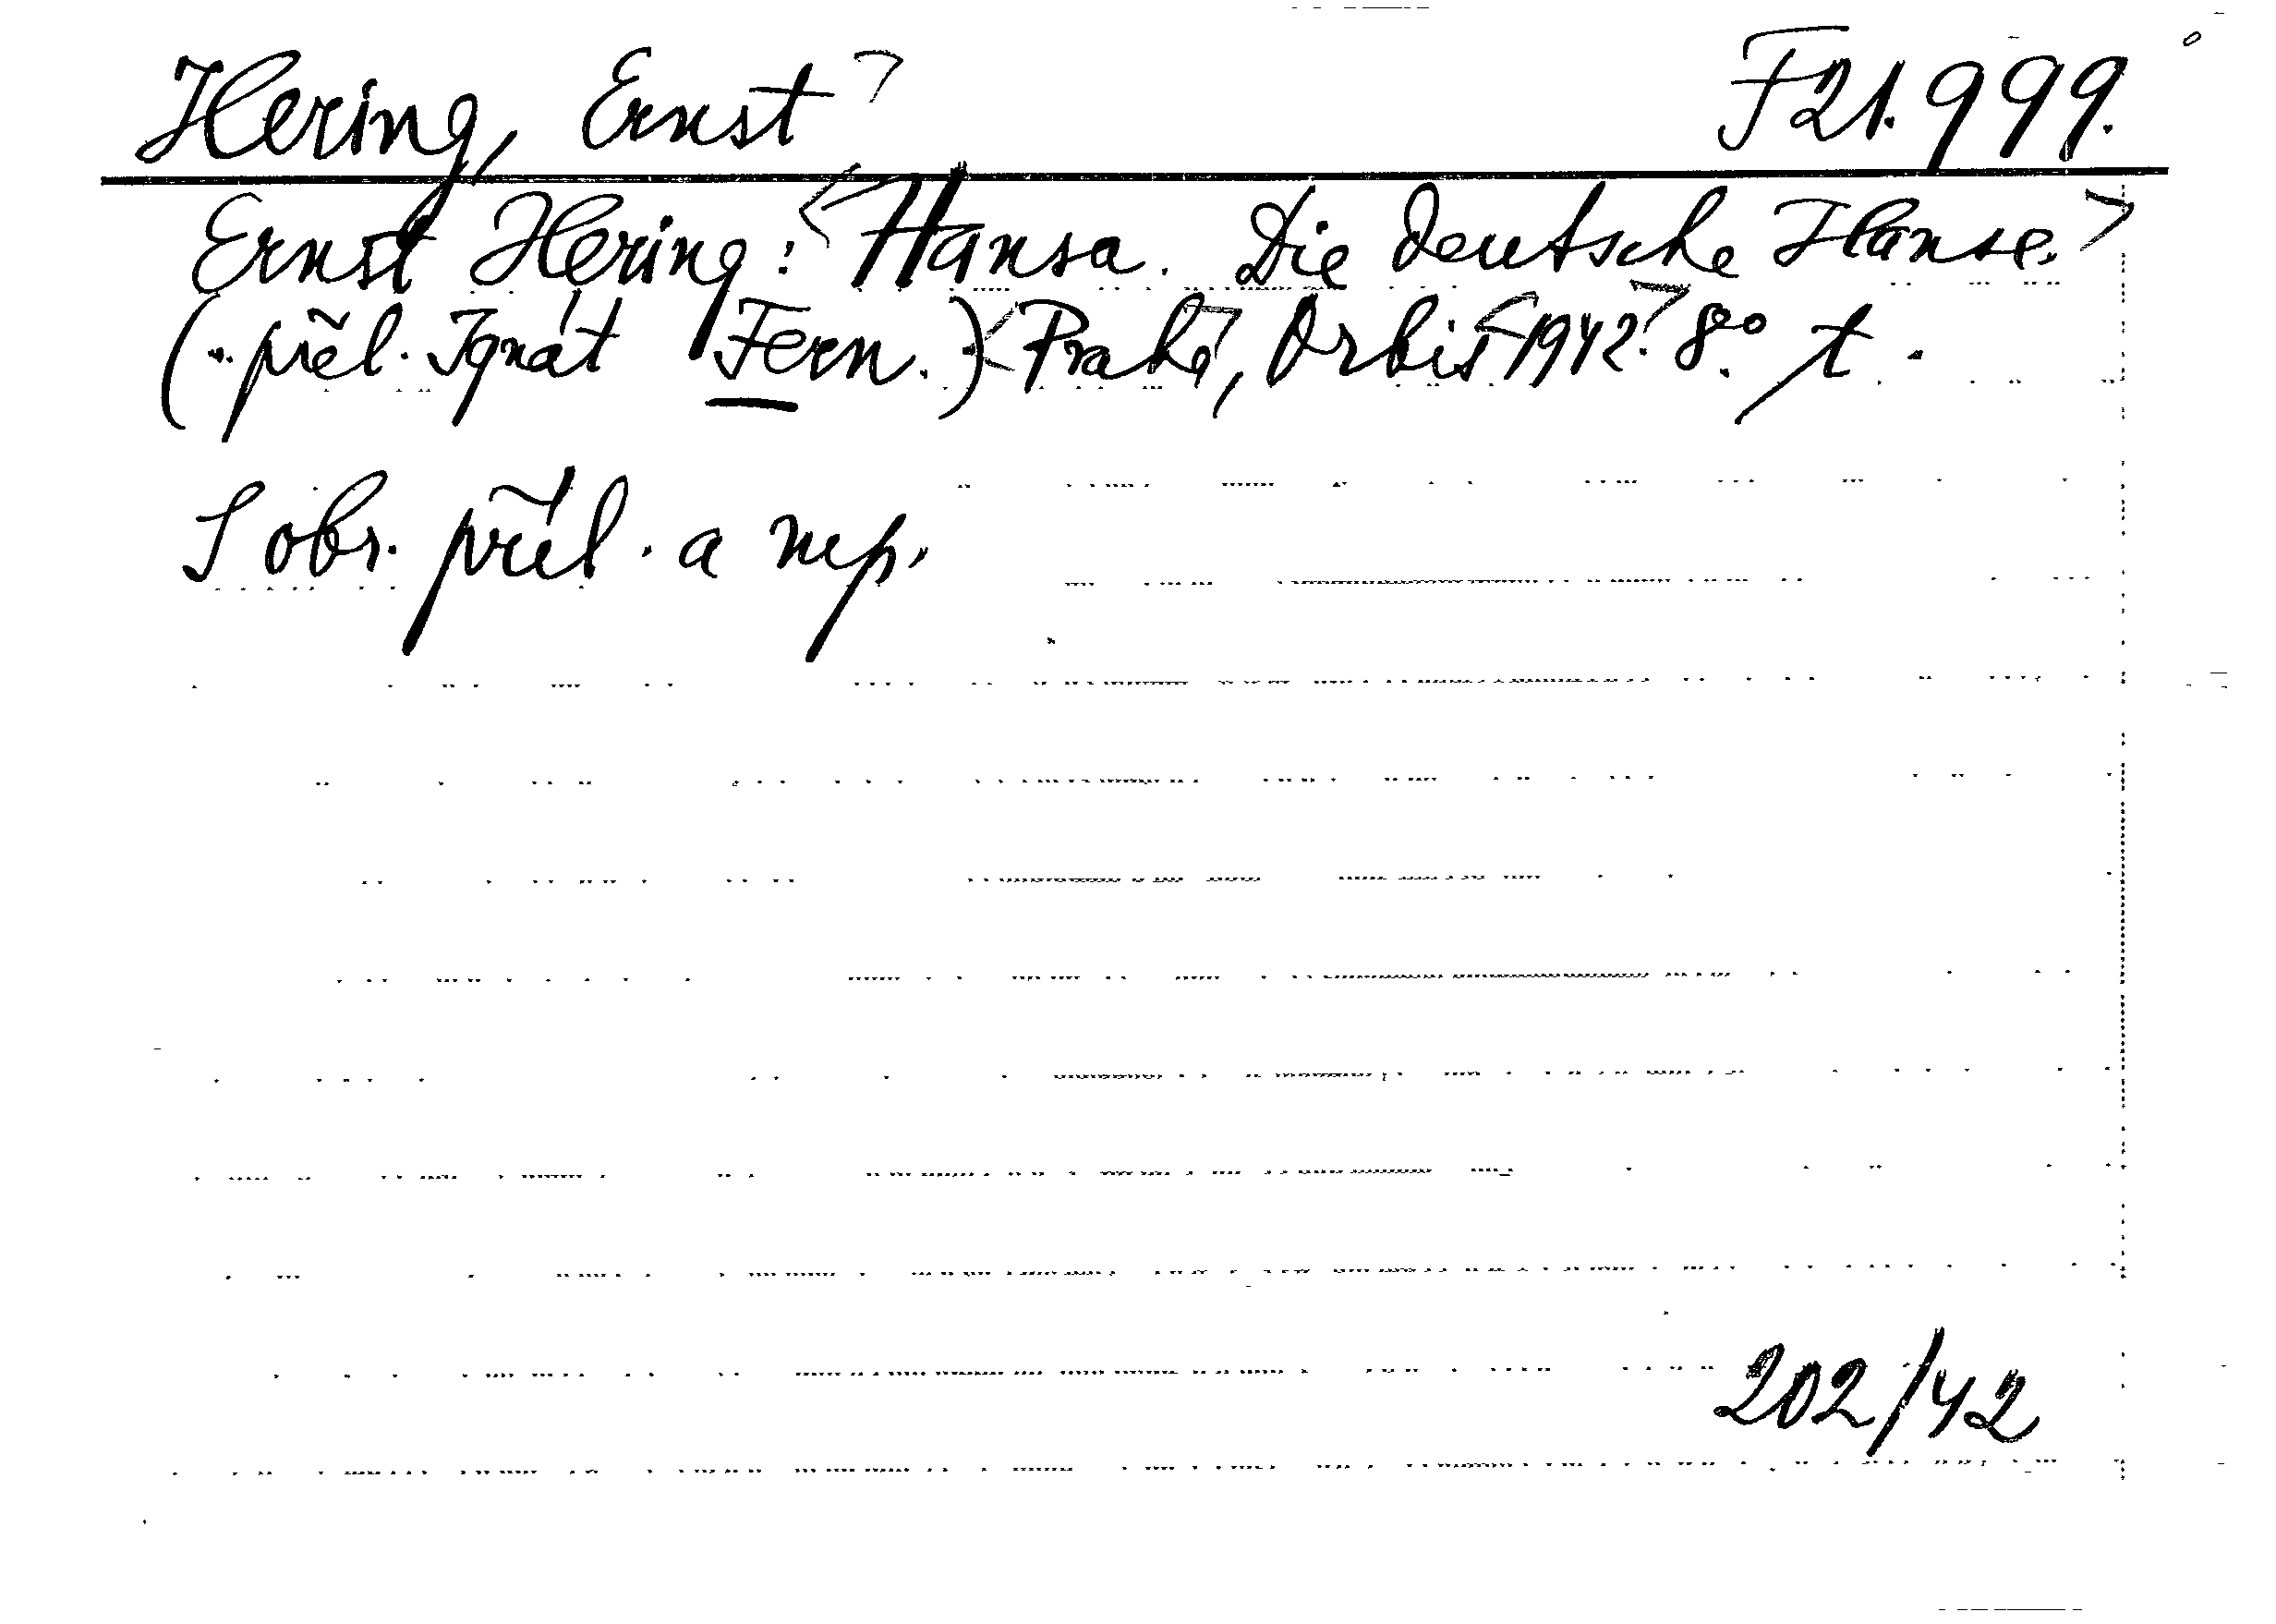 Hering, Ernst> F21.999.
Ernst Hering: <Hansa. Die deutsche Hanse.>
(.. přel. Ignát Fern.) <Praha>, Orbis <1942>. 8°. t.
S obr. příl. a
202/42